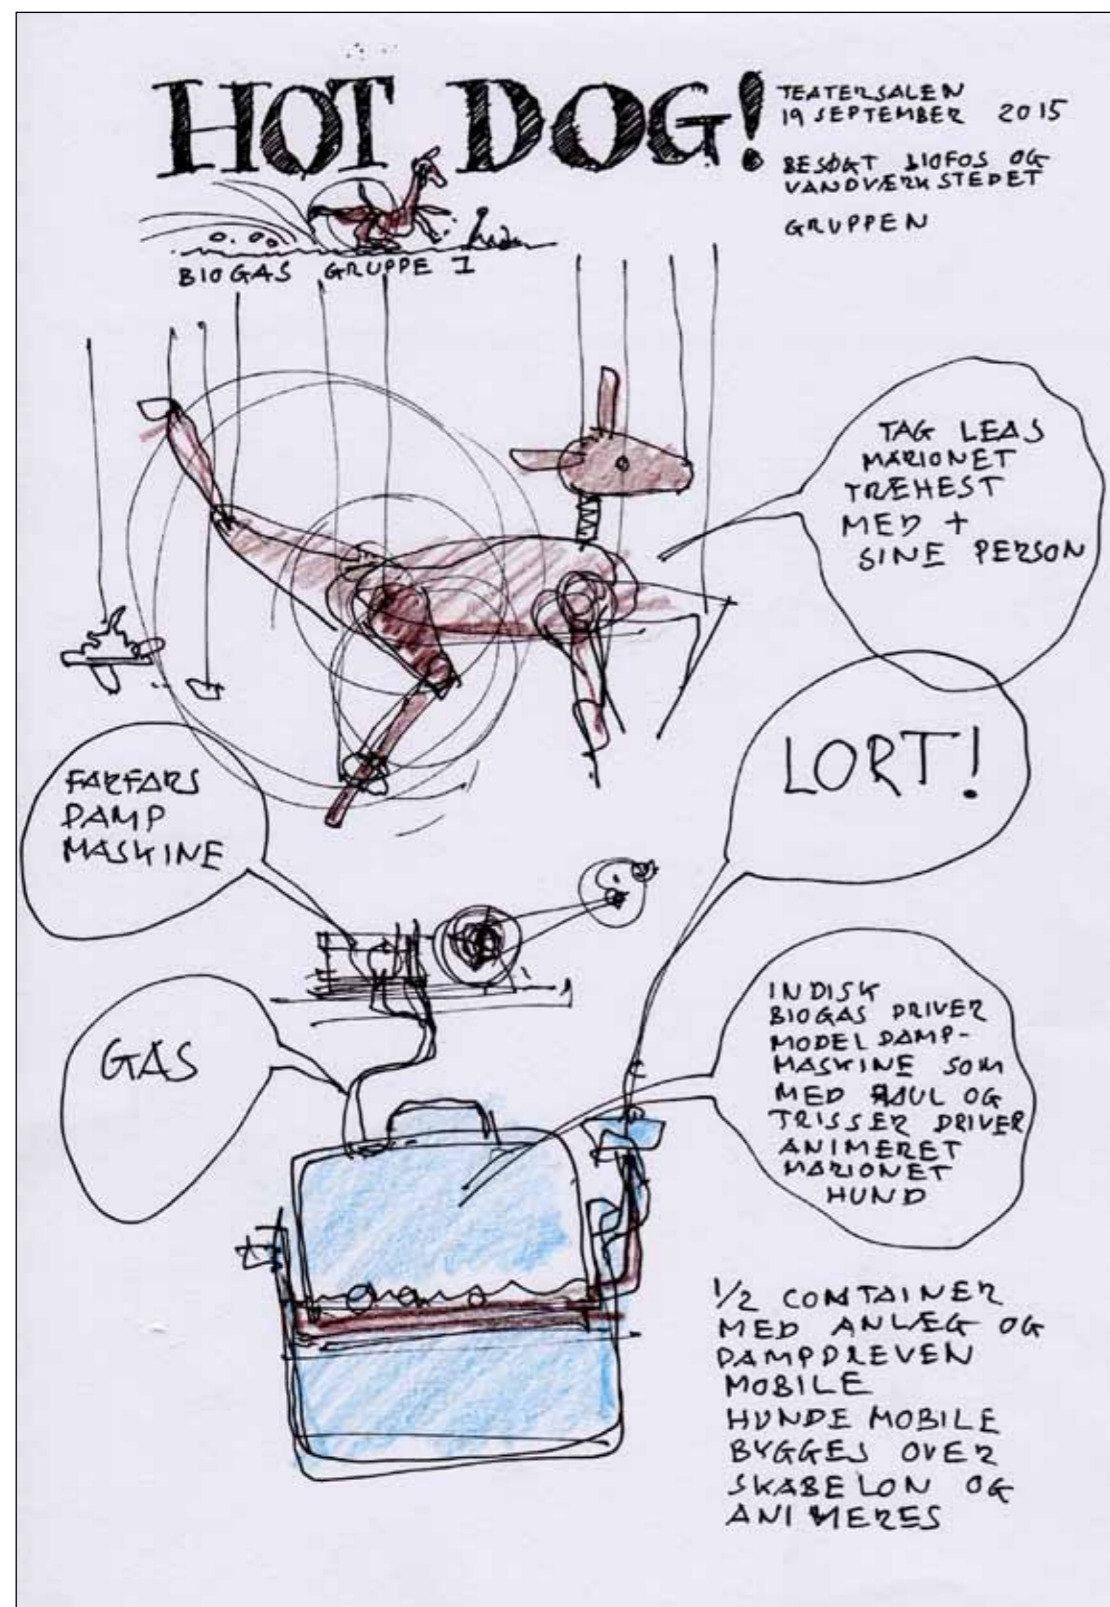 HOT DOG!
TEATERSALEN
19 SEPTEMBER 2015
BESØGT BIOFOS OG
VANDVÆRKSTEDET
GRUPPEN
BIOGAS GRUPPE 1
TAG LEAS
MARIONET
TRÆHEST
MED +
SINE PERSON
LORT!
FARFARS
DAMP
MASKINE
GAS
INDISK
BIOGAS DRIVER
MODEL DAMP-
MASKINE SOM
MED HJUL OG
TRISSER DRIVER
ANIMERET
MARIONET
HUND
1/2 CONTAINER
MED ANLÆG OG
DAMPDREVEN
MOBILE
HUNDE MOBILE
BYGGES OVER
SKABELON OG
ANIMERES